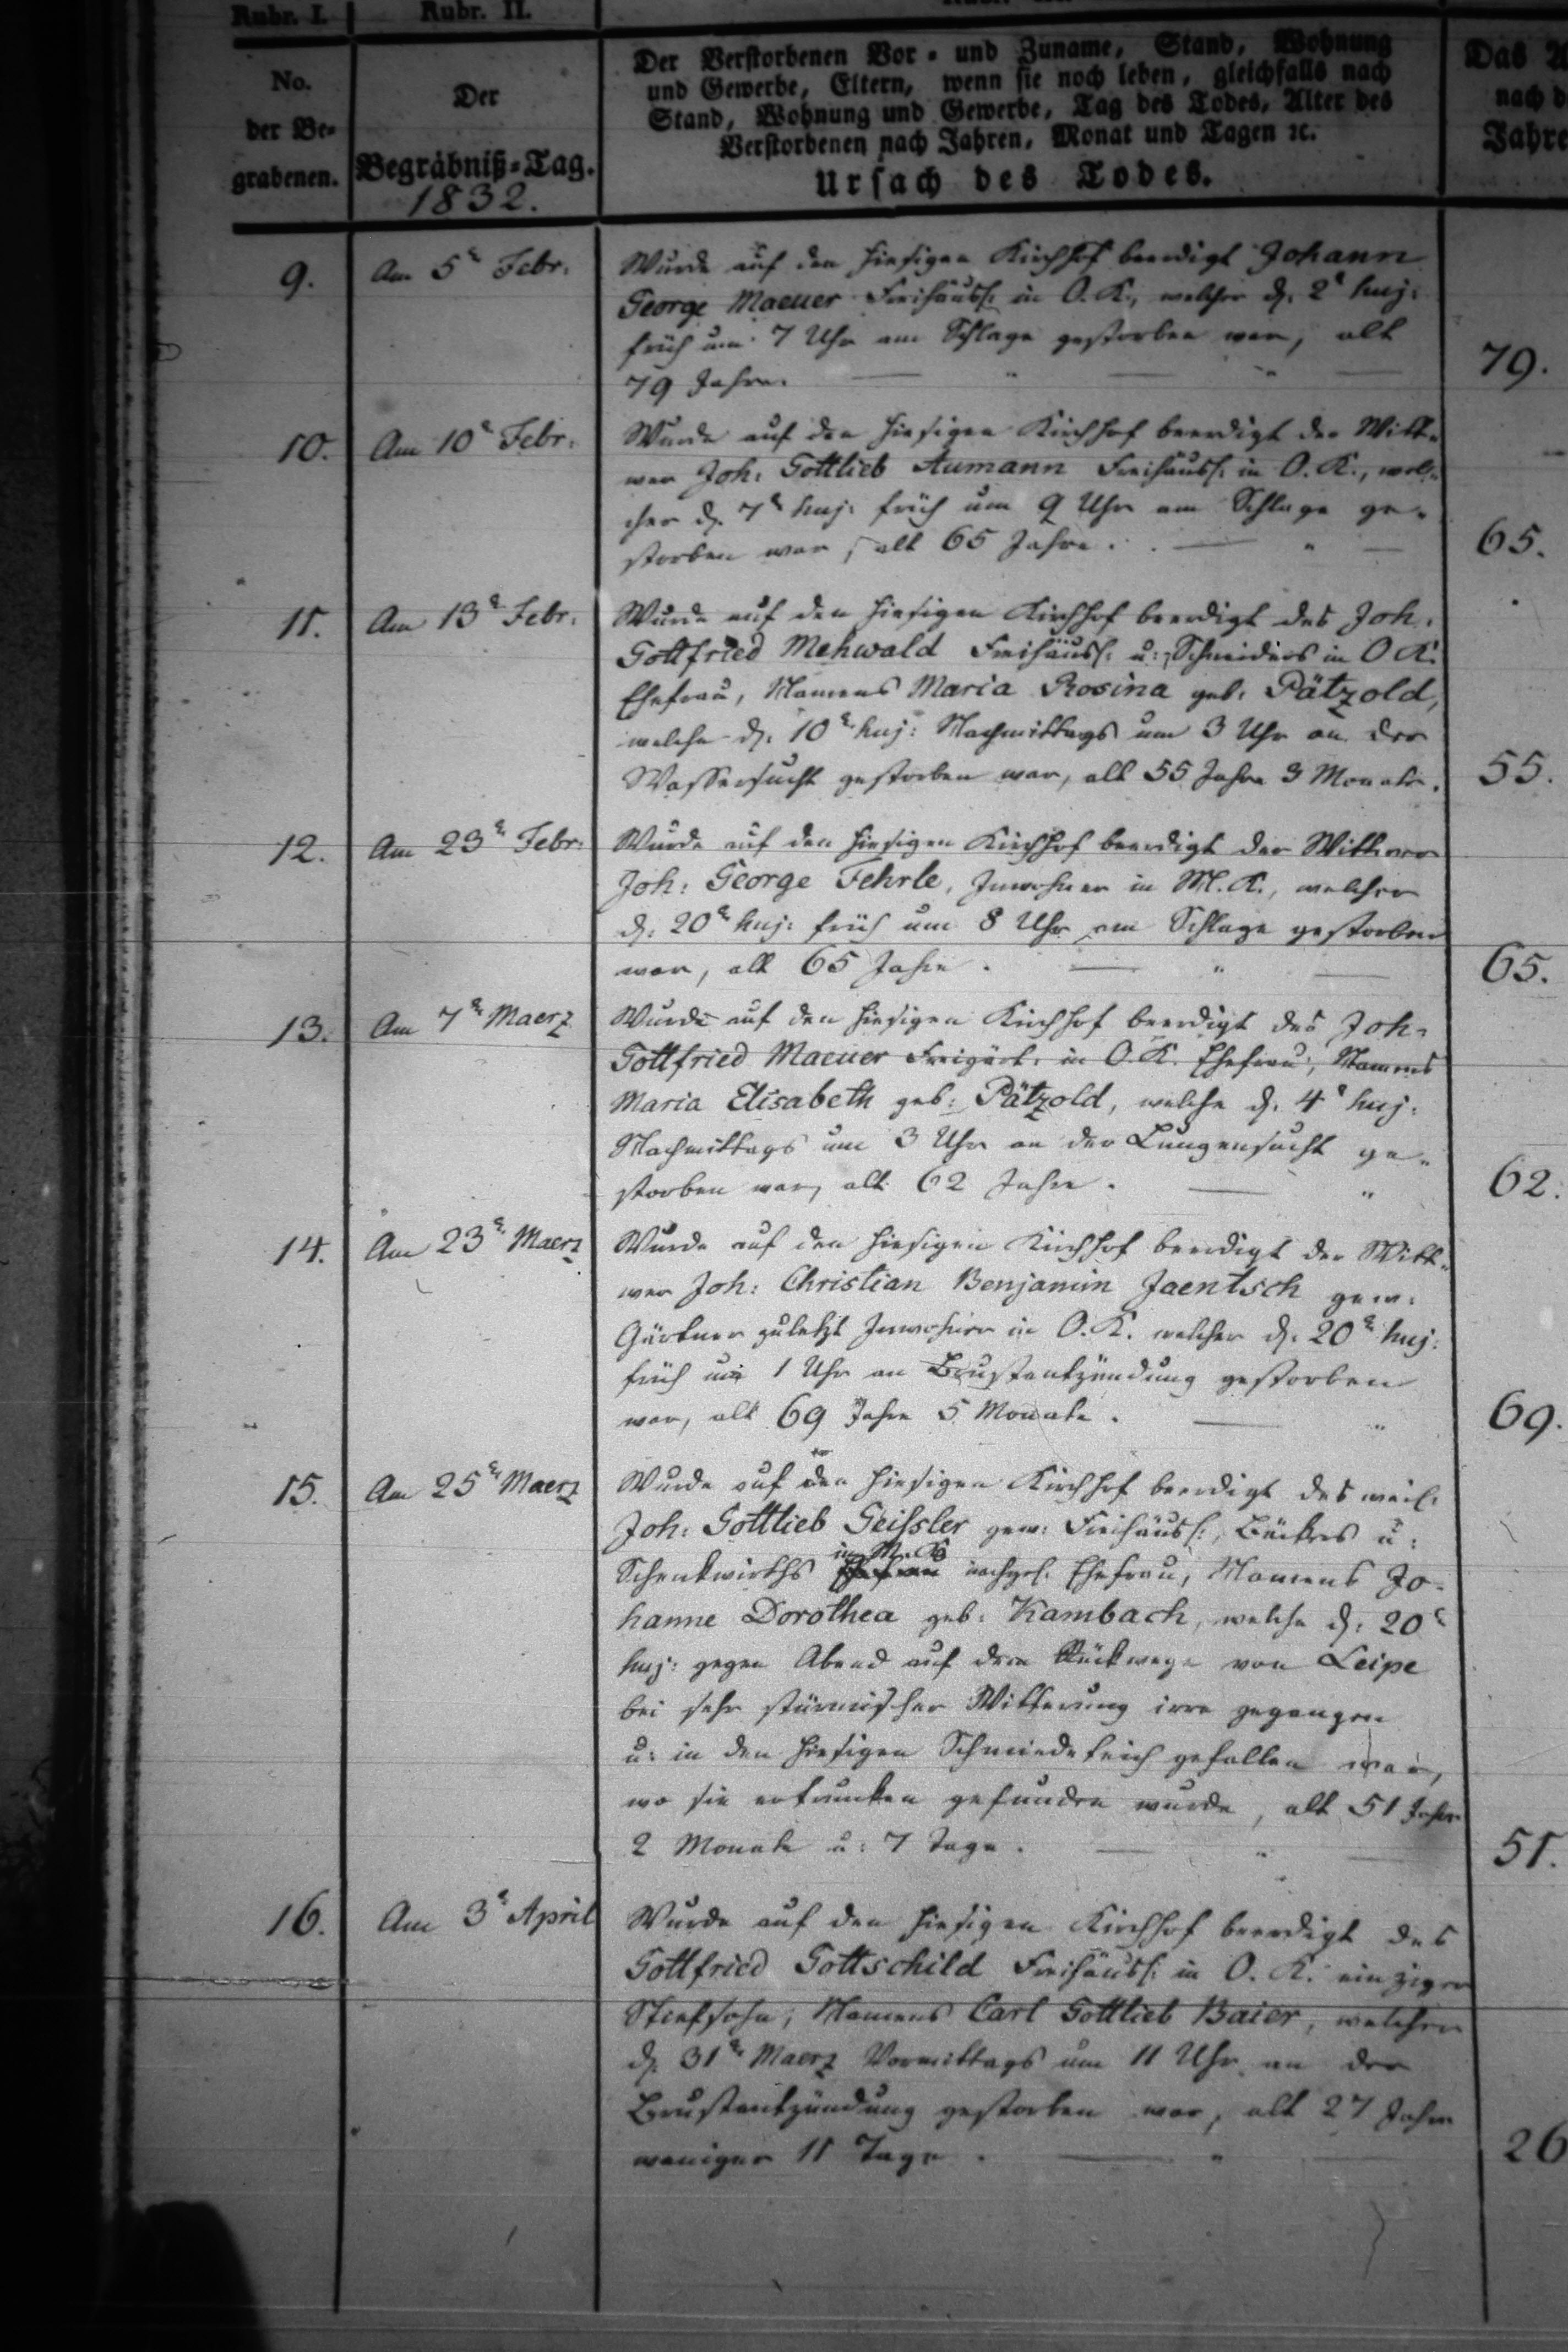 Rubr. I. Rubr. II.
No. der Be= grabenen.
Der Begräbniß=Tag. 1832.
Der Verstorbenen Vor = und Zuname, Stand, Wohnung
und Gewerbe, Eltern, wenn sie noch leben, gleichfalls nach
Stand, Wohnung und Gewerbe, Tag des Todes, Alter des
Verstorbenen nach Jahren, Monat und Tagen ꝛc.
Ursach des Todes.
Das A
nach d
Jahre
9. Am 5t Febr. Wurde auf den hiesigen Kirchhof beerdigt Johann
George Maeuer Freihäusl: in O. K., welcher d. 2t huj:
früh um 7 Uhr am Schlage gestorben war, alt
79 Jahre. 79.
10. Am 10t Febr: Wurde auf den hiesigen Kirchhof beerdigt der Witt=
wer Joh: Gottlieb Aumann Freihäusl: in O. K., wel=
cher d. 7t huj: früh um 9 Uhr am Schlage ge=
storben war, alt 65 Jahre. 65.
11. Am 13t Febr. Wurde auf den hiesigen Kirchhof beerdigt des Joh.
Gottfried Mehwald Freihäusl: u: Schneiders in O K.
Ehefrau, Namens Maria Rosina geb: Pätzold,
welche d. 10t huj: Nachmittags um 3 Uhr an der
Wassersucht gestorben war, alt 55 Jahre 3 Monate. 55.
12. Am 23t Febr: Wurde auf den hiesigen Kirchhof beerdigt der Wittwer
Joh: George Fehrle, Inwohner in M. K., welcher
d. 20t huj: früh um 8 Uhr am Schlage gestorben
war, alt 65 Jahre. 65.
13. Am 7t Maerz Wurde auf den hiesigen Kirchhof beerdigt des Joh=
Gottfried Maeuer Freigärt: in O. K. Ehefrau, Namens
Maria Elisabeth geb: Pätzold, welche d. 4t huj:
Nachmittags um 3 Uhr an der Lungensucht ge=
storben war, alt 62 Jahre. 62.
14. Am 23t Maerz Wurde auf den hiesigen Kirchhof beerdigt der Witt=
wer Joh: Christian Benjamin Jaentsch gew:
Gärtner zuletzt Inwohner in O. K. welcher d. 20t huj:
früh um 1 Uhr an Brustentzündung gestorben
war, alt 69 Jahre 5 Monate. 69.
15. Am 25t Maerz Wurde auf den hiesigen Kirchhof beerdigt des weil:
Joh: Gottlieb Geissler gew: Freihäusl:, Bäckers u:
in M. K.
Schenkwirths Ehefrau nachgel: Ehefrau, Namens Jo=
hanne Dorothea geb: Kambach, welche d. 20t
huj: gegen Abend auf dem Rückwege von Leipe
bei sehr stürmischer Witterung irre gegangen
u: in den hiesigen Schmiedeteich gefallen war,
wo sie ertrunken gefunden wurde, alt 51 Jahre
2 Monate u: 7 Tage. 51.
16. Am 3t April Wurde auf den hiesigen Kirchhof beerdigt des
Gottfried Gottschild Freihäusl: in O. K. einziger
Stiefsohn, Namens Carl Gottlieb Baier, welcher
d. 31t Maerz Vormittags um 11 Uhr an der
Brustentzündung gestorben war, alt 27 Jahre
weniger 11 Tage. 26